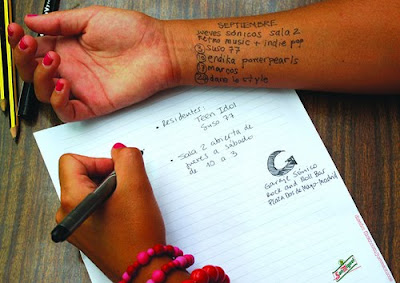 SEPTIEMBRE
jueves sónicos sala 2
Retro music + indie pop
3 Suso 77
10 endika powerpearls
17 marcos
24 dario lo style
• Residentes:
Teen Idol
Suso 77
• Sala 2 abierta de
jueves a sábado
de 10 a 3
Garage Sónico
Rock and Roll Bar
Plaza Dos de Mayo-Madrid